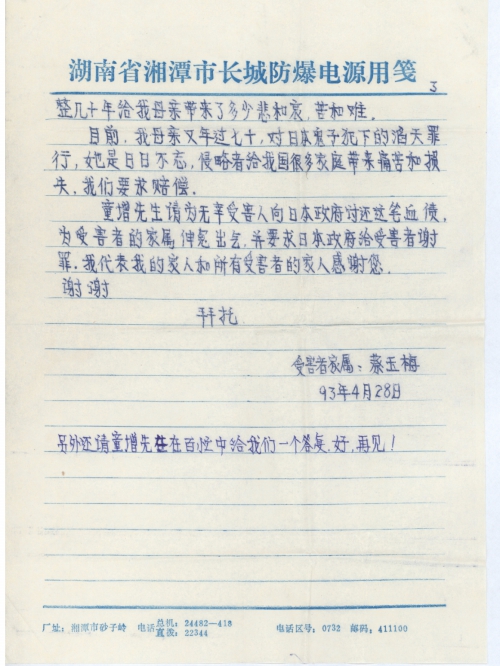 湖南省湘潭市长城防爆电源用笺
3
整几十年给我母亲带来了多少悲和哀，苦和难．
目前，我母亲又年过七十，对日本鬼子犯下的滔天罪
行，她是日日不忘，侵略者给我国很多家庭带来痛苦和损
失，我们要求赔偿．
童增先生请为无辜受害人向日本政府讨还这笔血债，
为受害者的家属伸冤出去，并要求日本政府给受害者谢
罪．我代表我的家人和所有受害者的家人感谢您．
谢谢
拜托
受害者家属：蔡玉梅
93年4月28日
另外还请童增先生在百忙中给我们一个答复．好，再见！
厂址：湘潭市砂子岭 电话 总机：24482—418 电话区号：0732 邮码：411100
直拨：22344